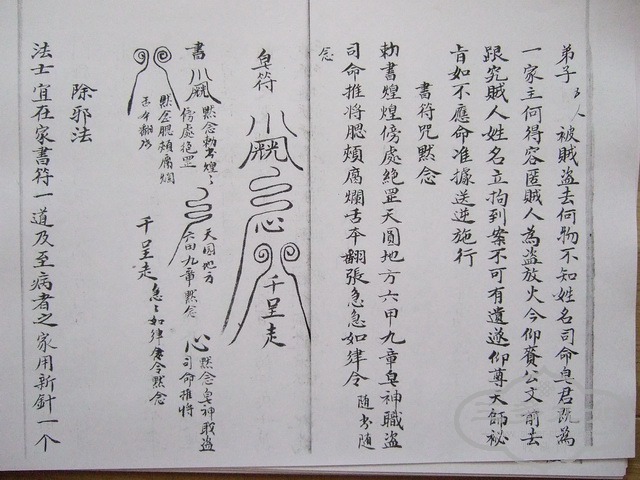 弟子 厶人 被賊盗去何物不知姓名司命皂君既為
一家主何得容匿賊人為盗放火今仰賚公文前去
跟究賊人姓名立拘到案不可有遺遂仰尊天師祕
旨如不應命准據送逆施行
書符咒默念
勅書煌煌傍處絶罡天圓地方六甲九章皂神職盗
司命推將腮頰腐爛舌本翻張急急如律令 随书随
念
皂符
心
千里走
書
默念勅書煌煌
傍處絶罡
天圓地方
六甲九章默念
心
默念皂神職盗
司命推將
默念腮頰腐爛
舌本翻張
千里走
急急如律令默念
除邪法
法士宜在家書符一道及至病者之家用新針一个